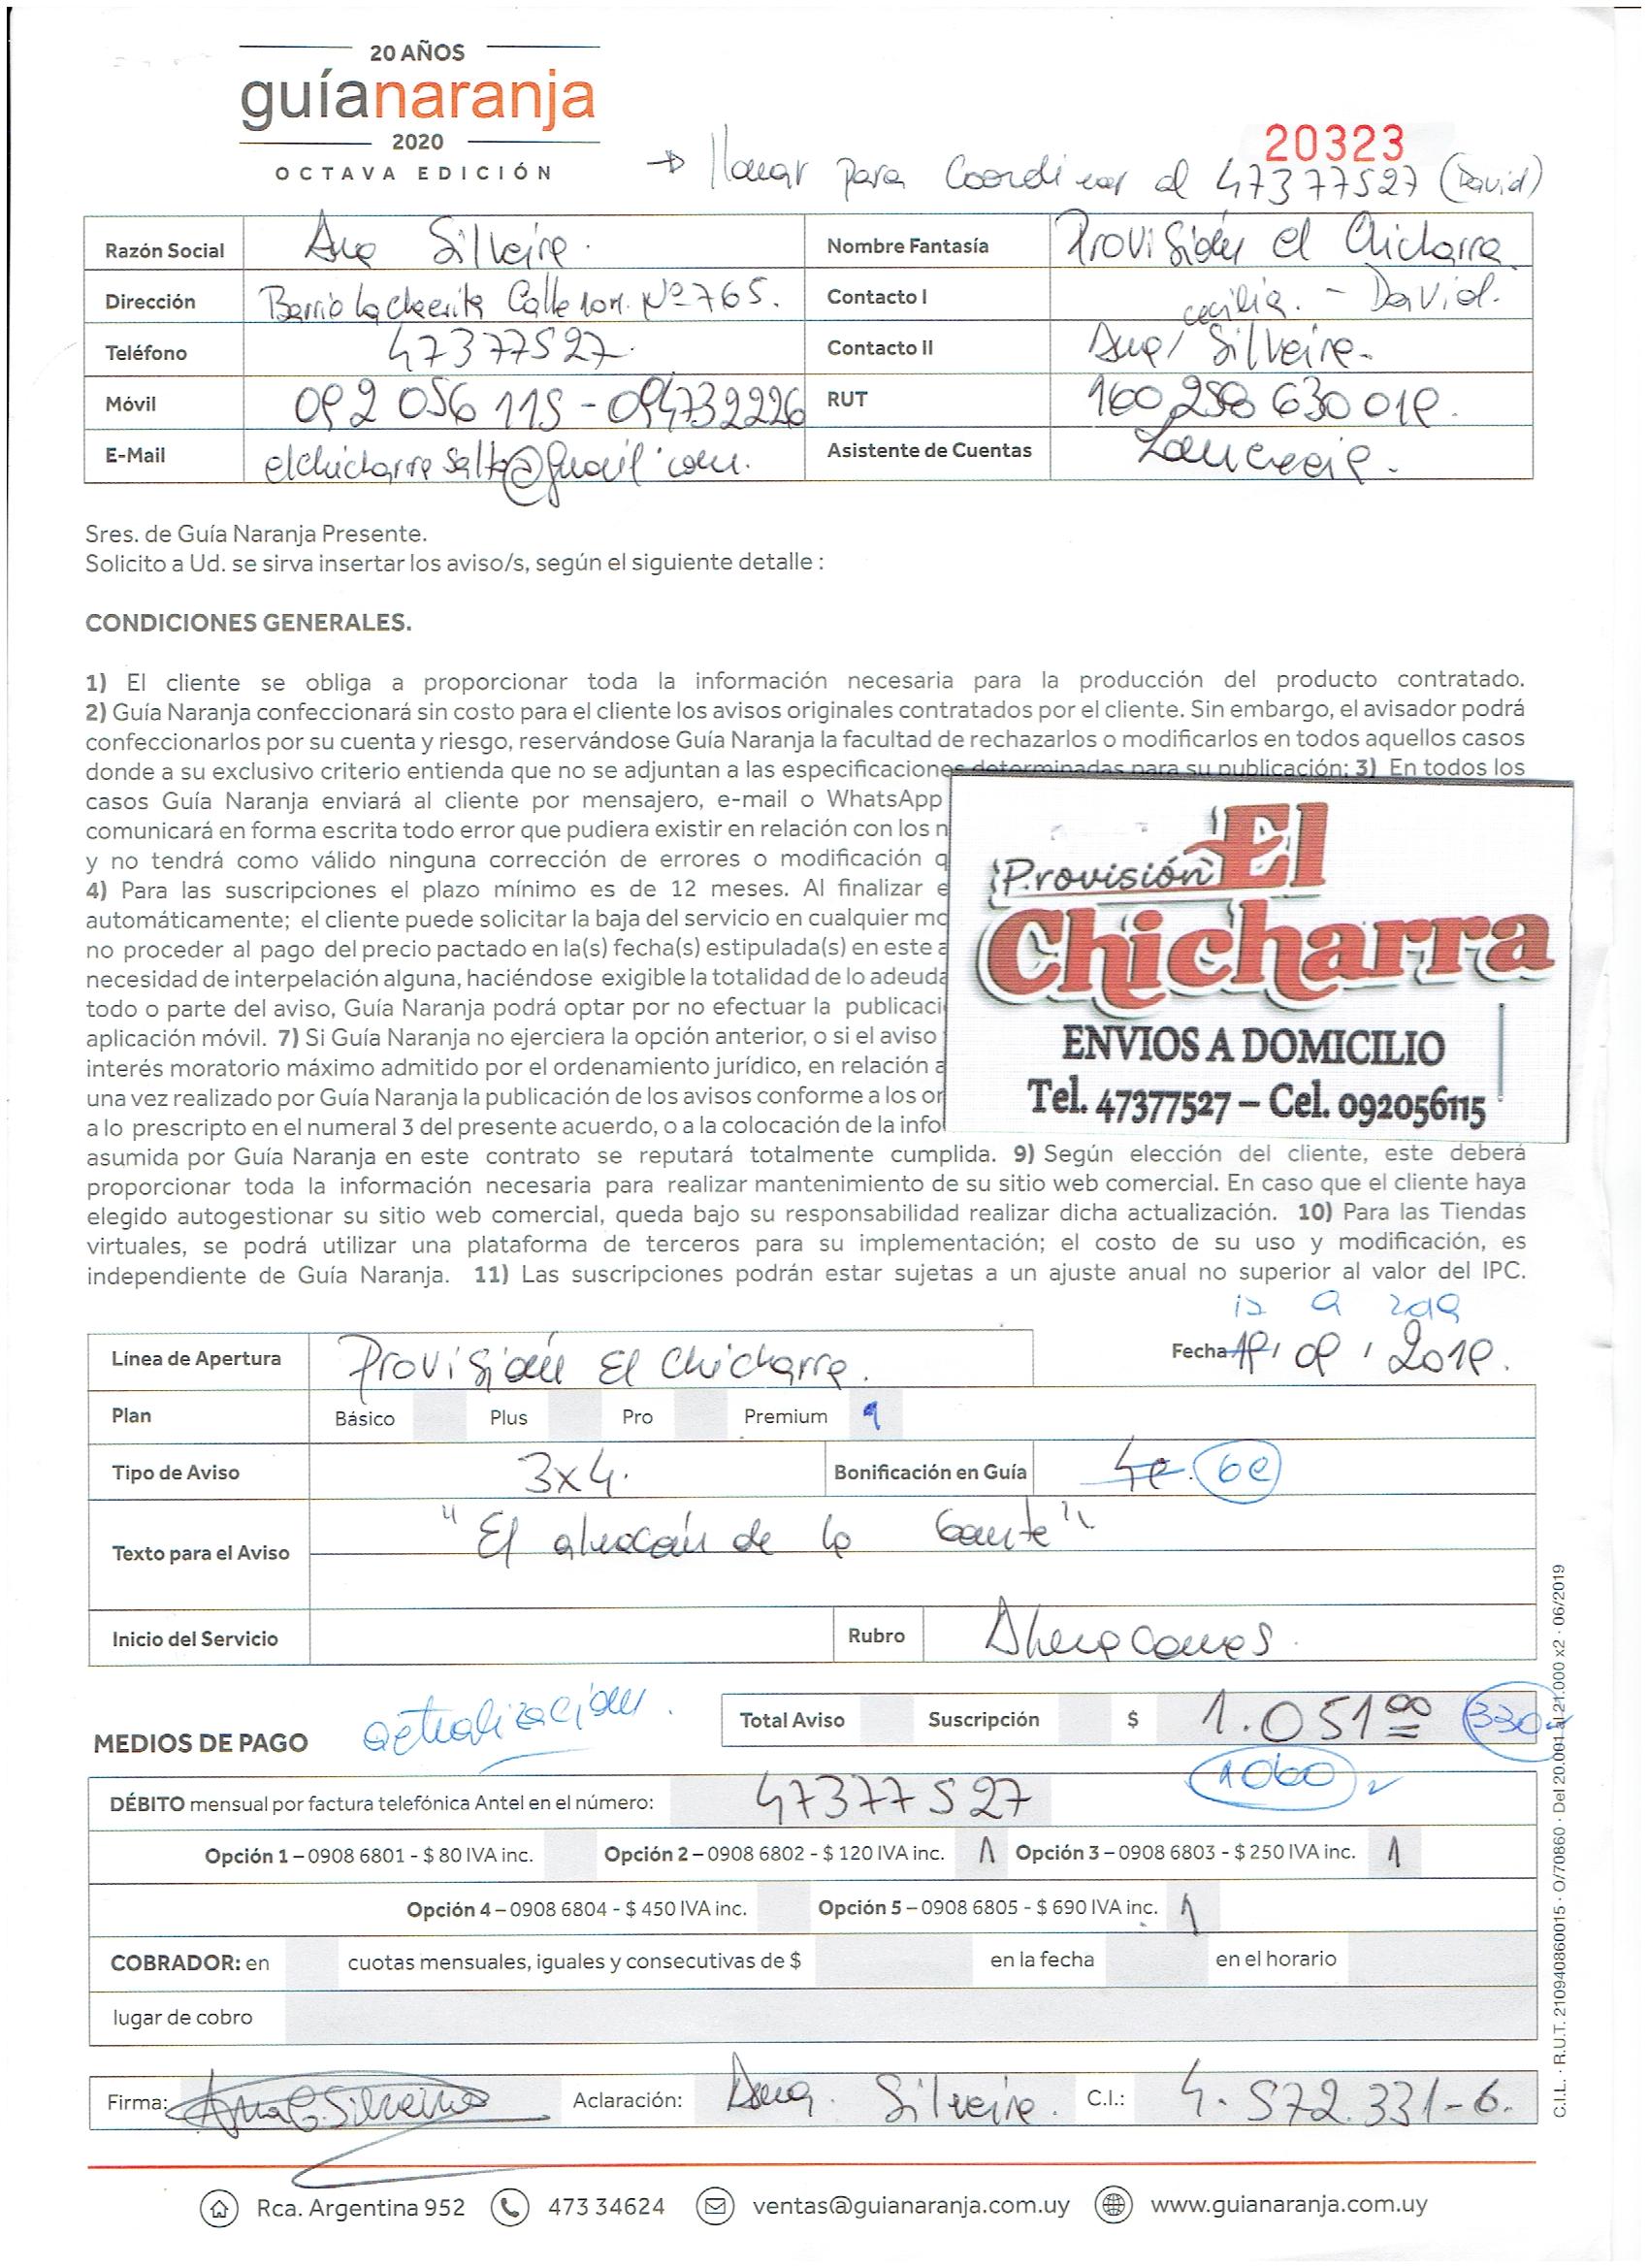 20 AÑOS
guíanaranja
2020
OCTAVA EDICIÓN
20323
→ llamar para Coordinar al 47377527 (David)
Razón Social Ana Silveira. Nombre Fantasía Provisión el Chicharra
Dirección Barrio La Nº 765. Contacto I cecilia. - David.
Teléfono 47377527. Contacto II Ana Silveira.
Móvil 092 056 115 - 094732226 RUT 160 258 630 019.
E-Mail elchicharrasalto@gmail.com. Asistente de Cuentas
Sres. de Guía Naranja Presente.
Solicito a Ud. se sirva insertar los aviso/s, según el siguiente detalle :
CONDICIONES GENERALES.
1) El cliente se obliga a proporcionar toda la información necesaria para la producción del producto contratado.
2) Guía Naranja confeccionará sin costo para el cliente los avisos originales contratados por el cliente. Sin embargo, el avisador podrá
confeccionarlos por su cuenta y riesgo, reservándose Guía Naranja la facultad de rechazarlos o modificarlos en todos aquellos casos
donde a su exclusivo criterio entienda que no se adjuntan a las especificaciones determinadas para su publicación; 3) En todos los
casos Guía Naranja enviará al cliente por mensajero, e-mail o WhatsApp
comunicará en forma escrita todo error que pudiera existir en relación con los n
y no tendrá como válido ninguna corrección de errores o modificación q
4) Para las suscripciones el plazo mínimo es de 12 meses. Al finalizar e
automáticamente; el cliente puede solicitar la baja del servicio en cualquier mo
no proceder al pago del precio pactado en la(s) fecha(s) estipulada(s) en este a
necesidad de interpelación alguna, haciéndose exigible la totalidad de lo adeuda
todo o parte del aviso, Guía Naranja podrá optar por no efectuar la publicaci
aplicación móvil. 7) Si Guía Naranja no ejerciera la opción anterior, o si el aviso
interés moratorio máximo admitido por el ordenamiento jurídico, en relación a
una vez realizado por Guía Naranja la publicación de los avisos conforme a los or
a lo prescripto en el numeral 3 del presente acuerdo, o a la colocación de la info
Provisión El
Chicharra
ENVIOS A DOMICILIO
Tel. 47377527 – Cel. 092056115
asumida por Guía Naranja en este contrato se reputará totalmente cumplida. 9) Según elección del cliente, este deberá
proporcionar toda la información necesaria para realizar mantenimiento de su sitio web comercial. En caso que el cliente haya
elegido autogestionar su sitio web comercial, queda bajo su responsabilidad realizar dicha actualización. 10) Para las Tiendas
virtuales, se podrá utilizar una plataforma de terceros para su implementación; el costo de su uso y modificación, es
independiente de Guía Naranja. 11) Las suscripciones podrán estar sujetas a un ajuste anual no superior al valor del IPC.
12 9 2019
Línea de Apertura Provisión El Chicharra. Fecha 19 / 09 / 2019.
Plan Básico Plus Pro Premium 1
Tipo de Aviso 3x4. Bonificación en Guía
Texto para el Aviso "El almacén de la Gente"
Inicio del Servicio Rubro Almacenes.
MEDIOS DE PAGO actualización. Total Aviso Suscripción $ 1.051 00 330
1060
DÉBITO mensual por factura telefónica Antel en el número: 47377527
Opción 1 – 0908 6801 - $ 80 IVA inc. Opción 2 – 0908 6802 - $ 120 IVA inc. 1 Opción 3 – 0908 6803 - $ 250 IVA inc. 1
Opción 4 – 0908 6804 - $ 450 IVA inc. Opción 5 – 0908 6805 - $ 690 IVA inc. 1
COBRADOR: en cuotas mensuales, iguales y consecutivas de $ en la fecha en el horario
lugar de cobro
Firma: Ana C. Silveira Aclaración: Ana Silveira. C.I.: 4.572.331-6.
C.I.L. · R.U.T. 210940860015 · O/70860 · Del 20.001 al 21.000 x2 · 06/2019
Rca. Argentina 952 473 34624 ventas@guianaranja.com.uy www.guianaranja.com.uy